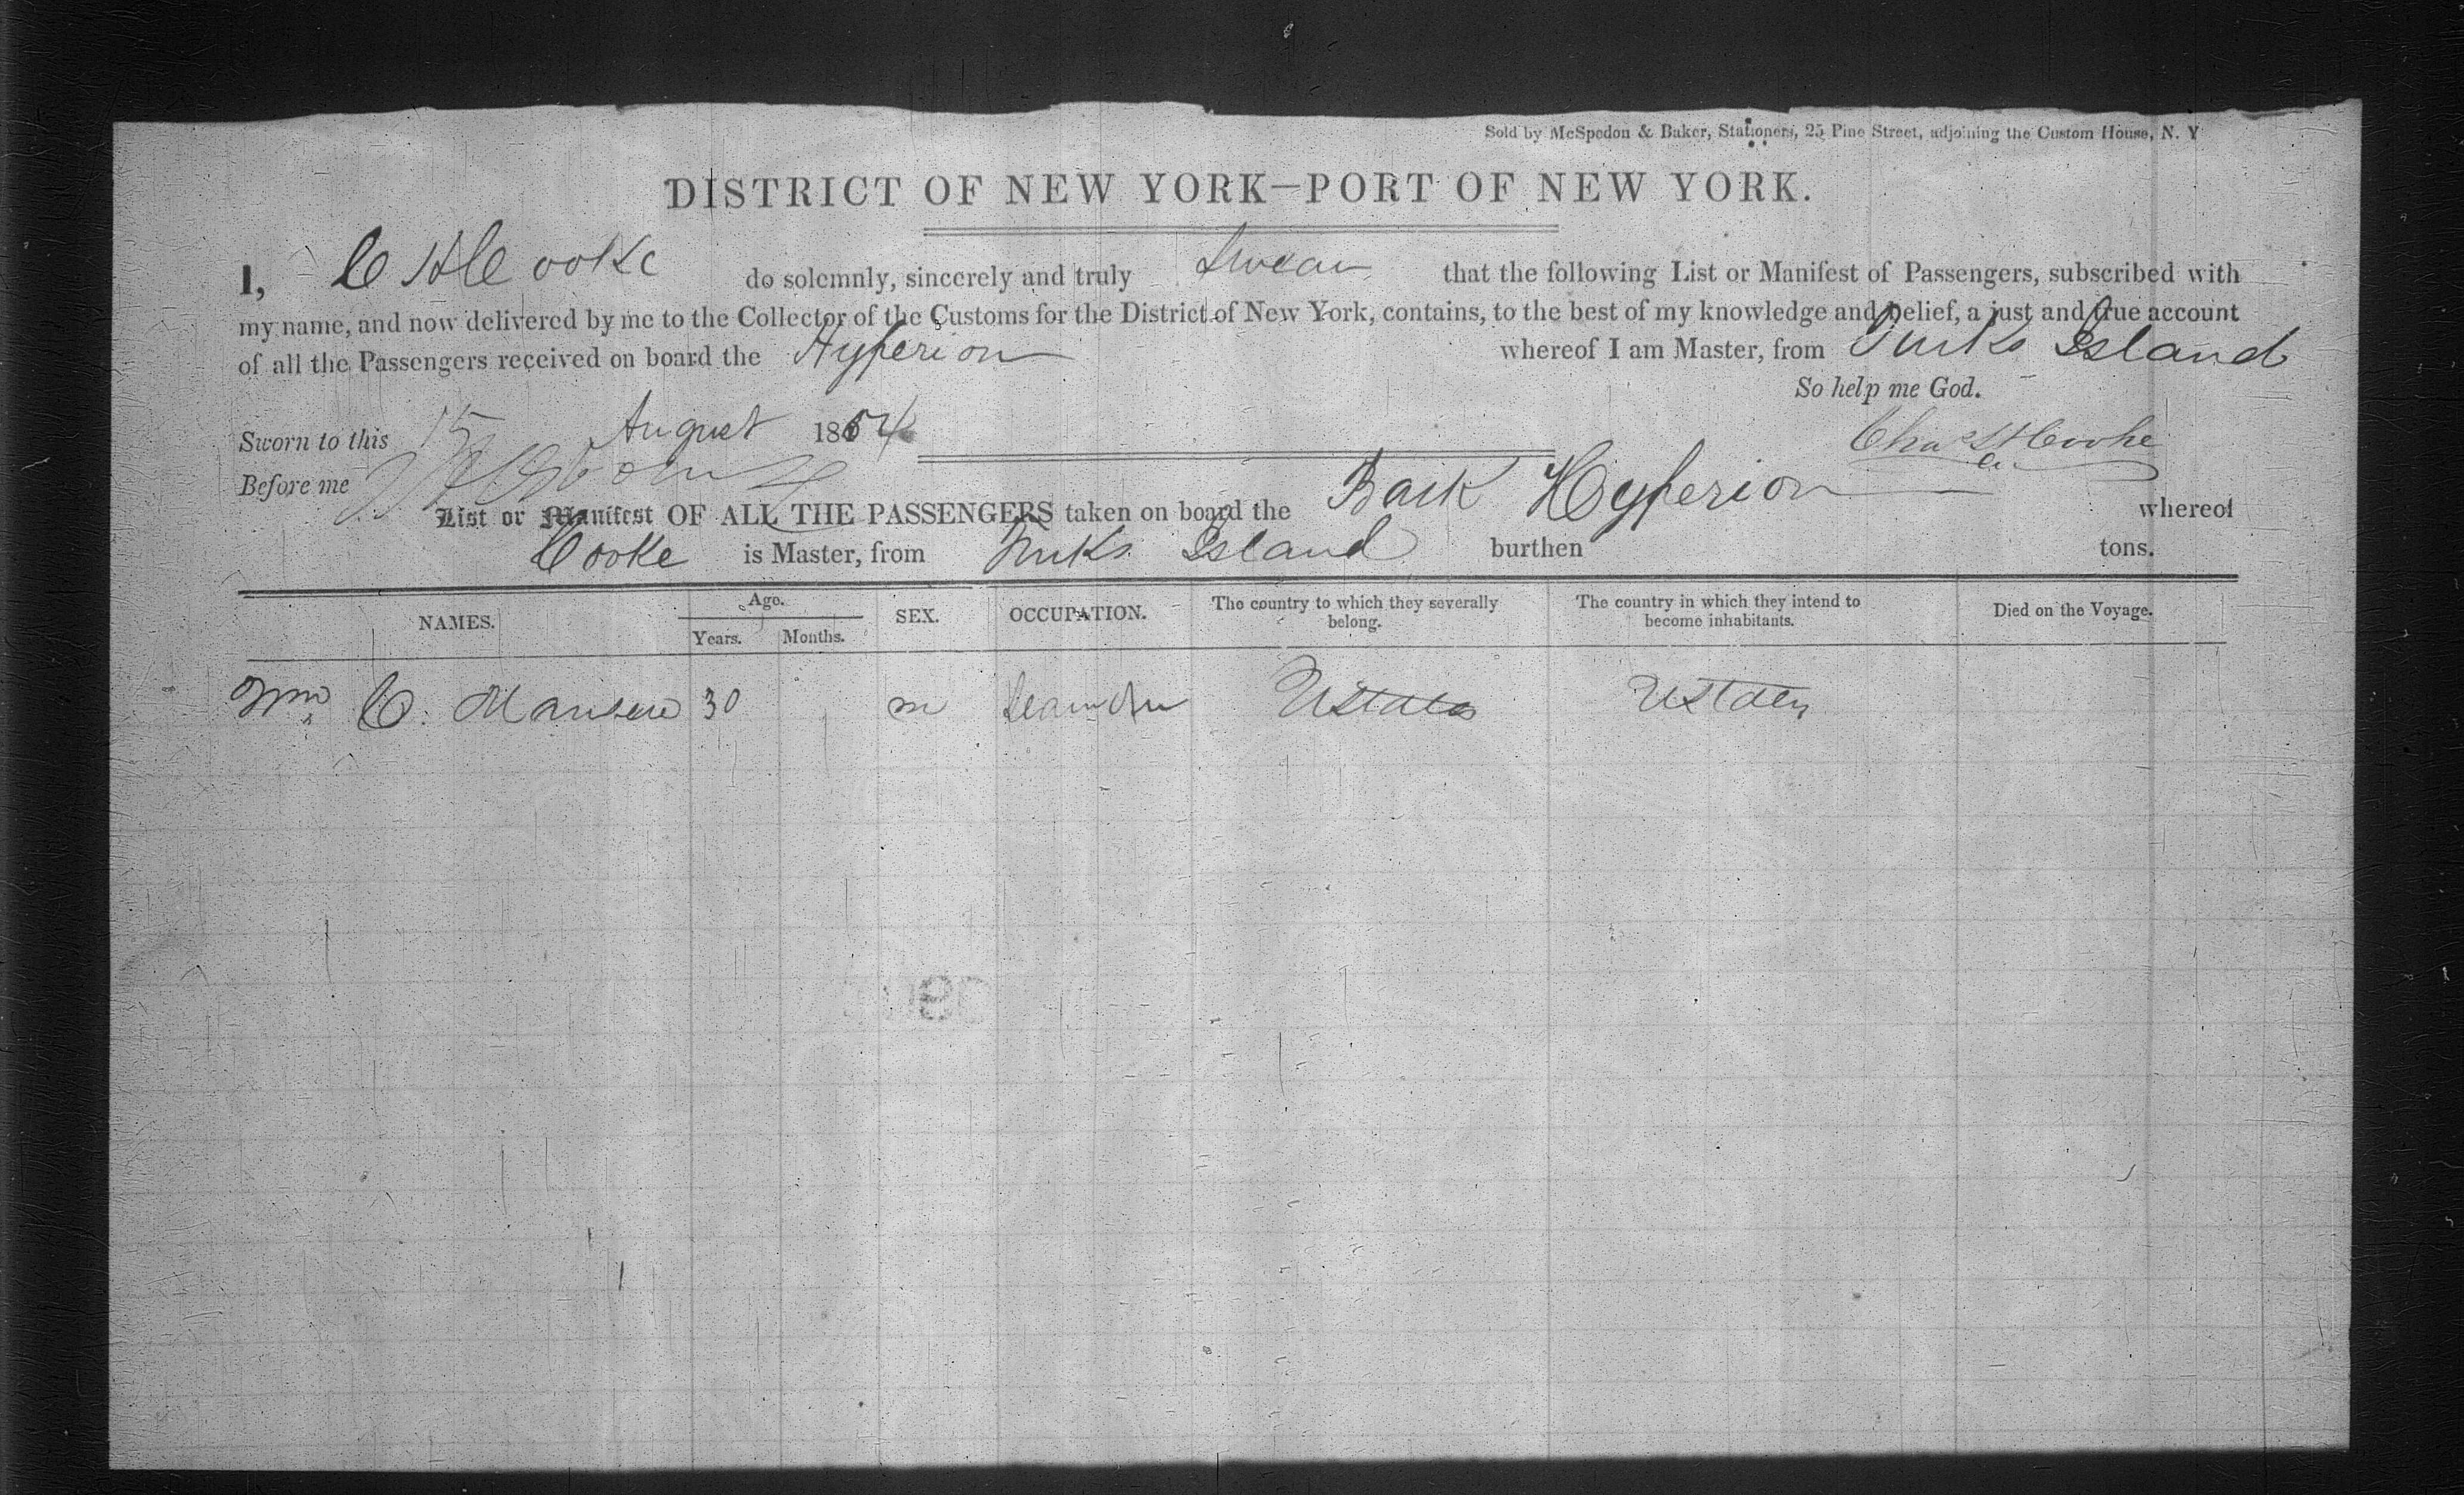 Sold by McSpedon & Baker, Stationers, 25 Pine Street, adjoining the Custom House, N. Y
DISTRICT OF NEW YORK—PORT OF NEW YORK.
I, C H Cooke do solemnly, sincerely and truly swear that the following List or Manifest of Passengers, subscribed with
my name, and now delivered by me to the Collector of the Customs for the District of New York, contains, to the best of my knowledge and belief, a just and true account
of all the Passengers received on board the Hyperion whereof I am Master, from Turks Island
So help me God.
Sworn to this 15 August 1854 Chas H Cooke
Before me
List or Manifest OF ALL THE PASSENGERS taken on board the Bark Hyperion whereof
Cooke is Master, from Turks Island burthen tons.
NAMES. Age. Years. Months. SEX. OCCUPATION. The country to which they severally belong. The country in which they intend to become inhabitants. Died on the Voyage.
Wm C. 30 m UStates UStates